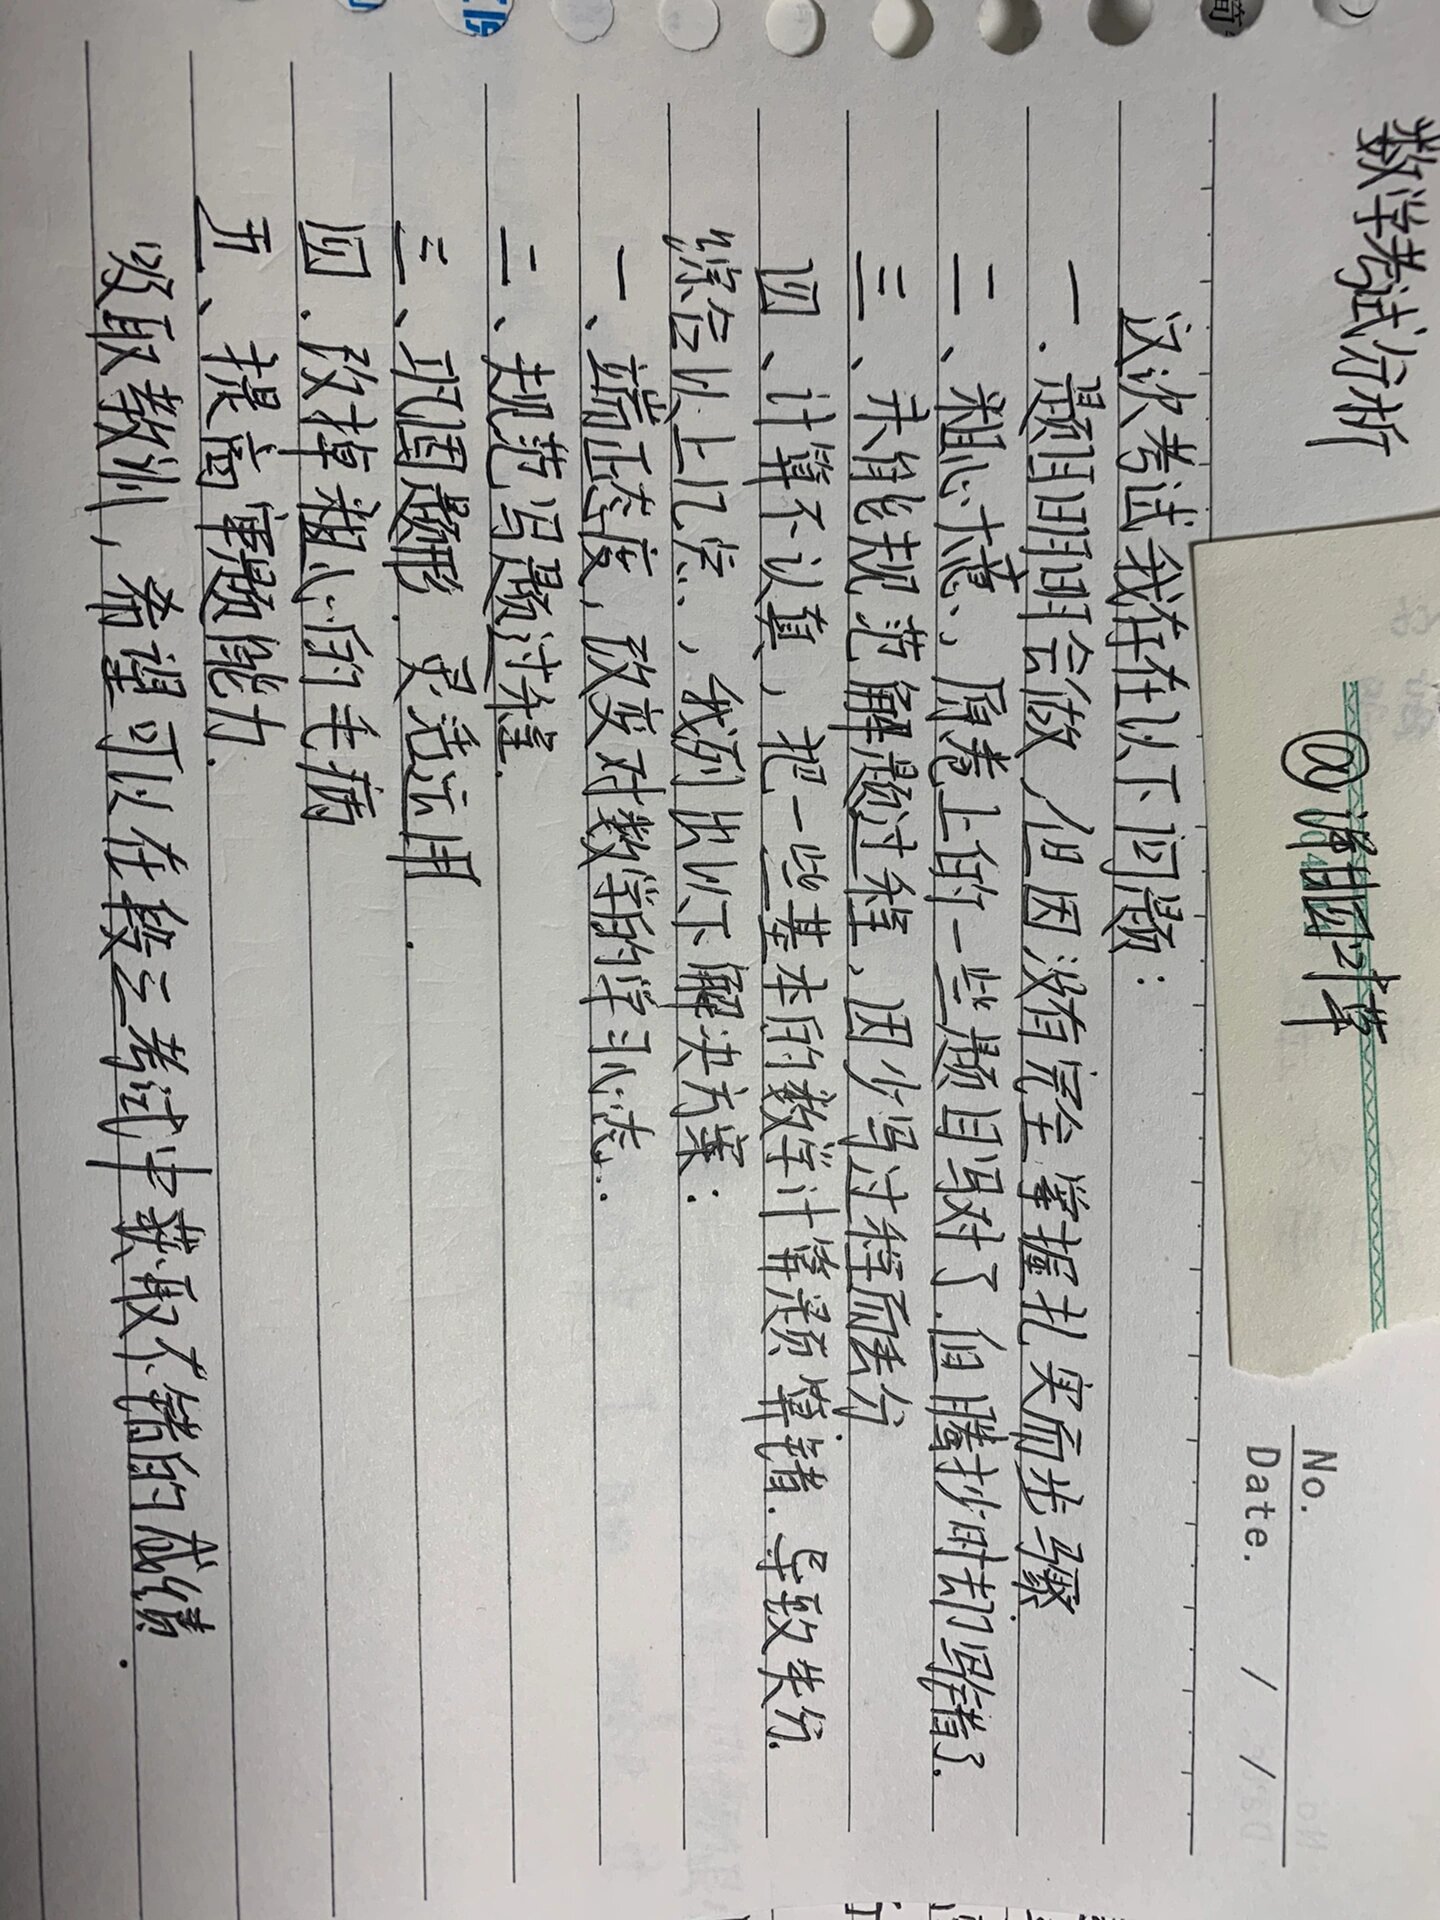 数学考试分析
No.
Date.    /    /
这次考试我存在以下问题：
一．题目明明会做，但因没有完全掌握扎实而步骤
二、粗心大意、，原卷上的一些题目写对了．但腾抄时却写错了．
三、未能规范解题过程、因少写过程而丢分
四、计算不认真、把一些基本的数学计算题算错．导致失分．
综合以上几点、，我列出以下解决方案：
一、端正态度，改变对数学的学习心态．
二、规范写题过程．
三、巩固题形．灵活运用．
四．改掉粗心的毛病
五、提高审题能力．
吸取教训，希望可以在段三考试中获取不错的成绩．